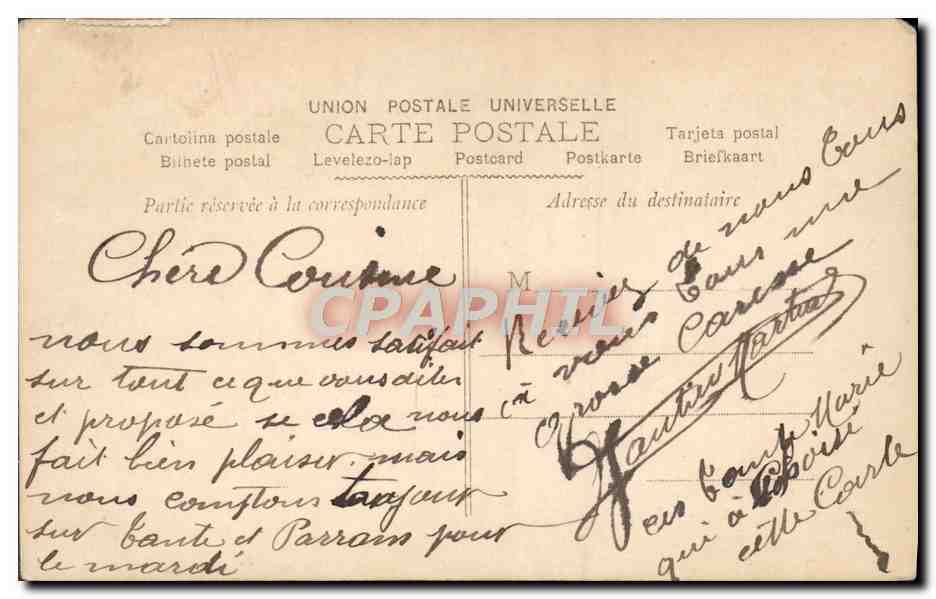 UNION POSTALE UNIVERSELLE
CARTE POSTALE
Cartolina postale
Tarjeta postal
Bilhete postal
Levelezo-lap
Postcard
Postkarte
Briefkaart
Partie réservée à la correspondance
Adresse du destinataire
M
CPAPHIL
Chère Cousine
nous sommes satifait
sur tout ce que vous dites
et proposé se cela nous
fait bien plaisir. mais
nous comptons toujour
sur Tante et Parrain pour
le mardi
de nous tous
vieus tous une
Grosse Caresse
ces tante Marie
qui à choisi
cette Carte